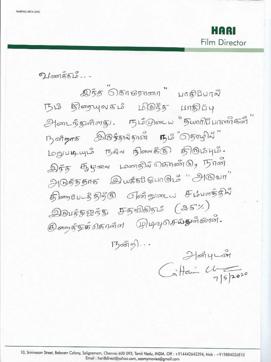 HARI
Film Director
வணக்கம்...
இந்த "கொரோனா" பாதிப்பால்
நம் திரையுலகம் மிகுந்த பாதிப்பு
அடைந்துள்ளது. நம்முடைய "தயாரிப்பாளர்கள்"
நன்றாக இருந்தால்தான் நம் "தொழில்"
மறுபடியும் நல்ல நிலைக்கு திரும்பும்.
இந்த சூழலை மனதில் கொண்டு, நான்
அடுத்ததாக இயக்கப்போகும் "அருவா"
திரைப்படத்திற்கு என்னுடைய சம்பளத்தில்
இருபத்தைந்து சதவிகிதம் (25%)
குறைத்துக்கொள்ள முடிவுசெய்துள்ளேன்.
நன்றி...
அன்புடன்
7/5/2020
10, Srinivasan Street, Baburam Colony, Saligramam, Chennai 600 093, Tamil Nadu, INDIA.